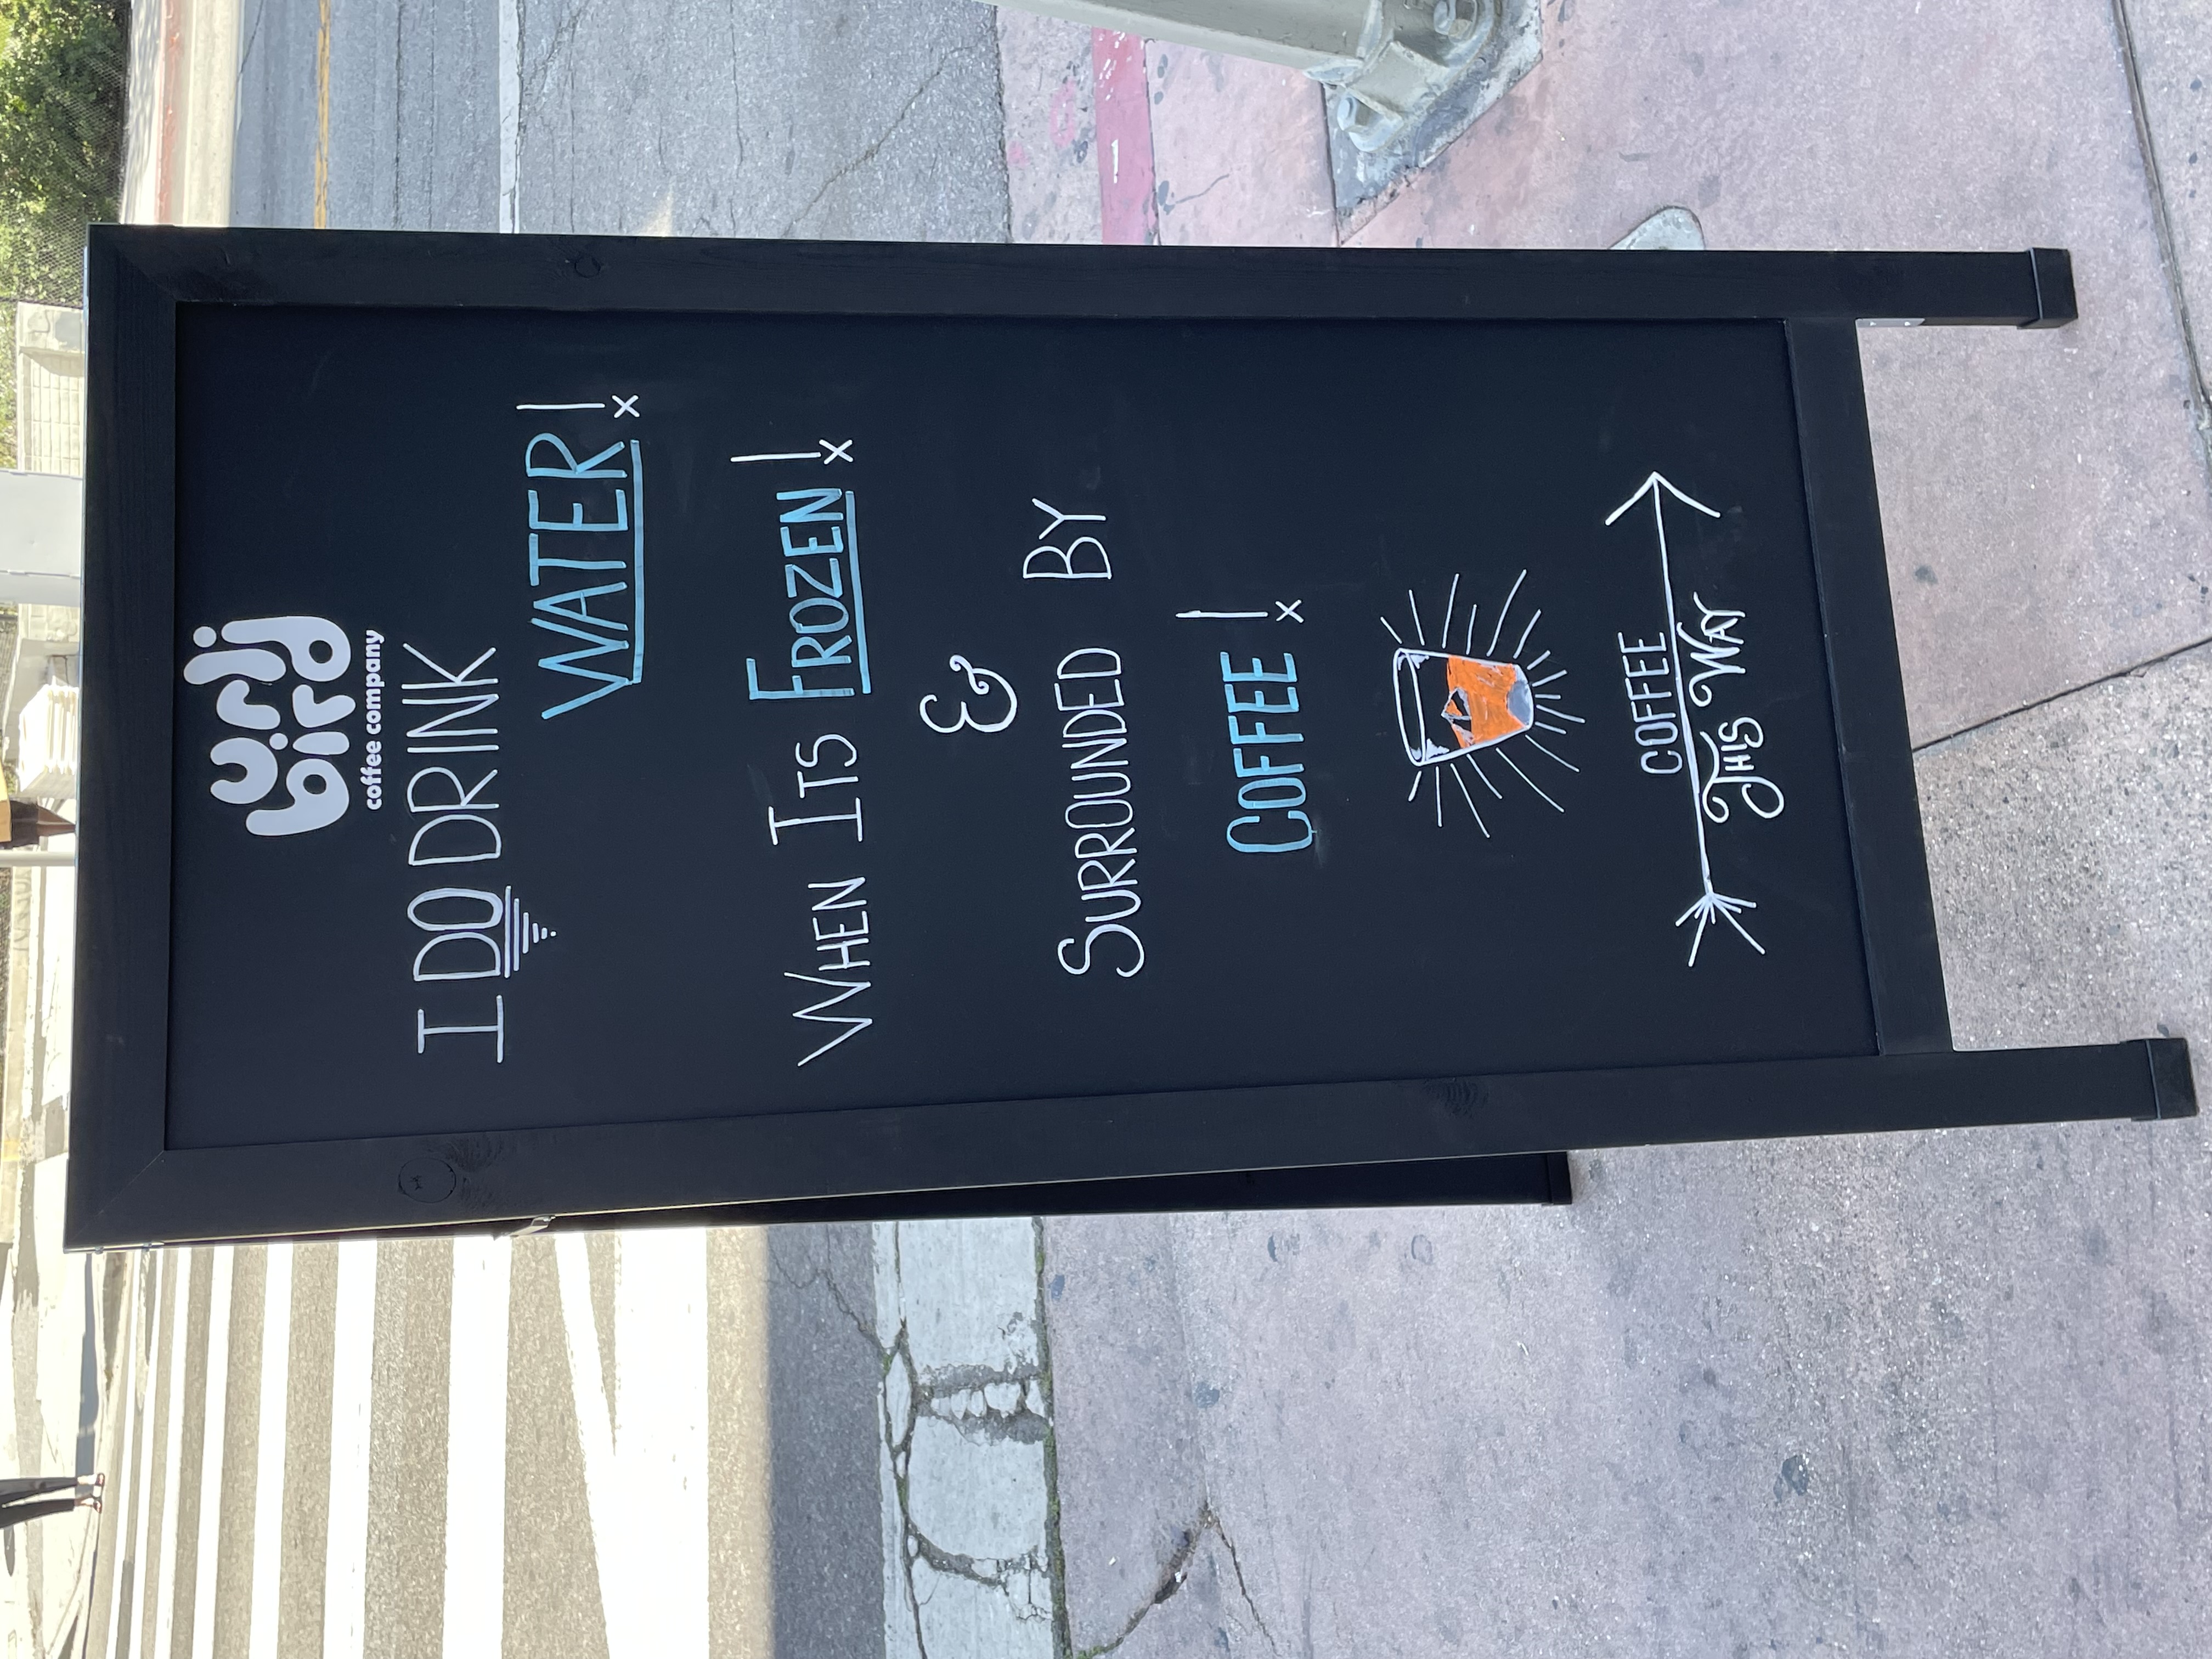 urli
bird
coffee company
I DO DRINK
WATER!
WHEN ITS FROZEN!
&
SURROUNDED BY
COFFEE!
COFFEE
THIS WAY